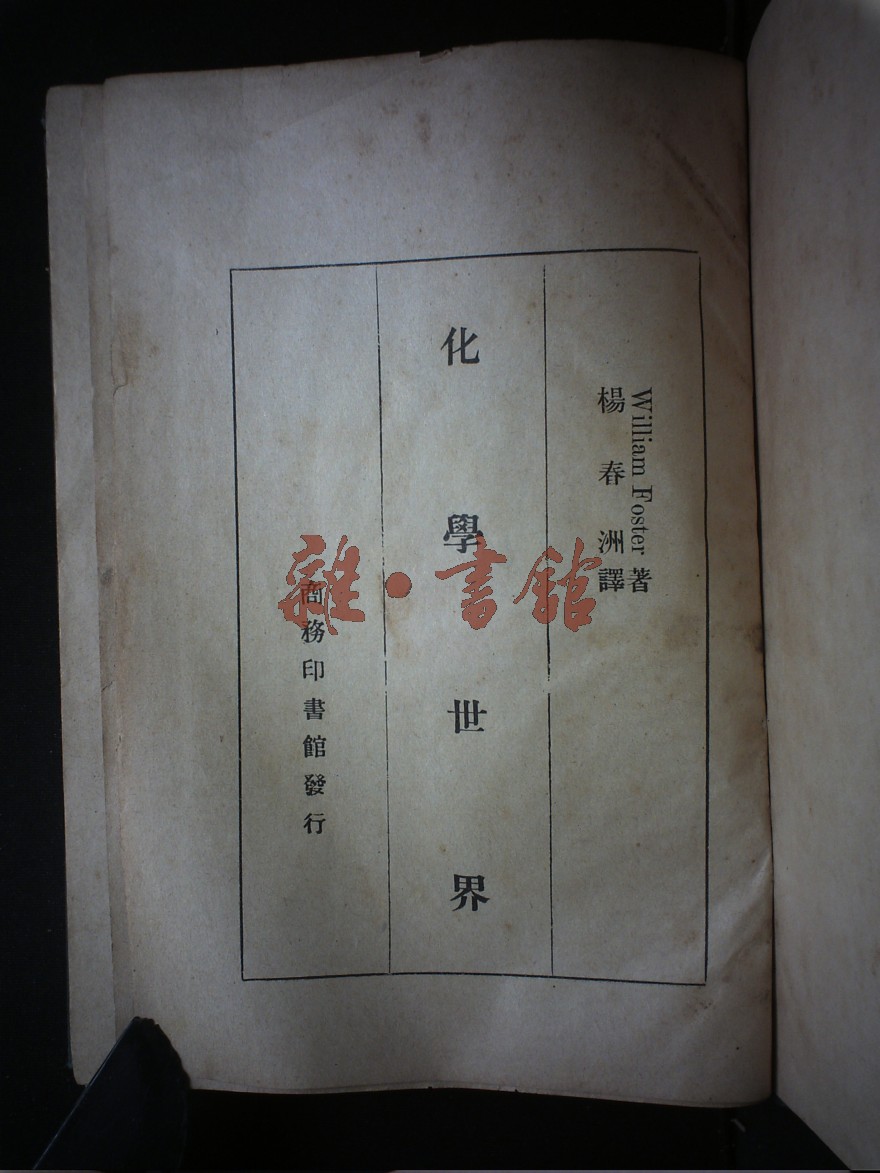 William Foster 著
楊春洲譯
化學世界
商務印書館發行
雜·書館